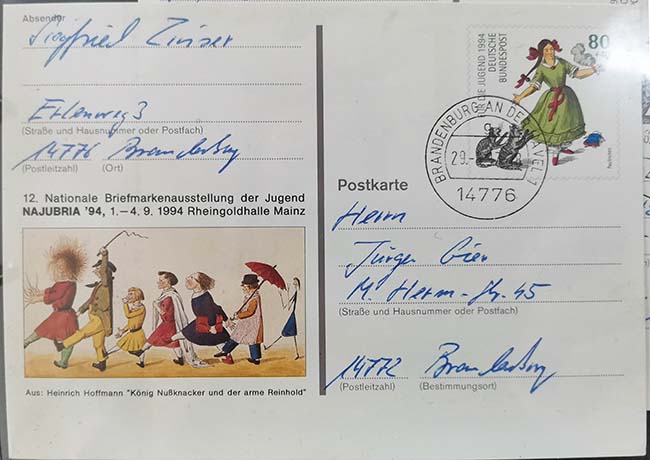 Absender
Siegfried Zinser
Erlenweg 3
(Straße und Hausnummer oder Postfach)
14776 Brandenburg
(Postleitzahl) (Ort)
12. Nationale Briefmarkenausstellung der Jugend
NAJUBRIA '94, 1.–4. 9. 1994 Rheingoldhalle Mainz
Aus: Heinrich Hoffmann "König Nußknacker und der arme Reinhold"
DIE JUGEND 1994
DEUTSCHE
BUNDESPOST
80
Paulinchen
BRANDENBURG AN DER HAVEL 1
29.-
9
14776
Postkarte
Herrn
Jürgen Gier
M. Herm-Str. 45
(Straße und Hausnummer oder Postfach)
14772 Brandenburg
(Postleitzahl) (Bestimmungsort)